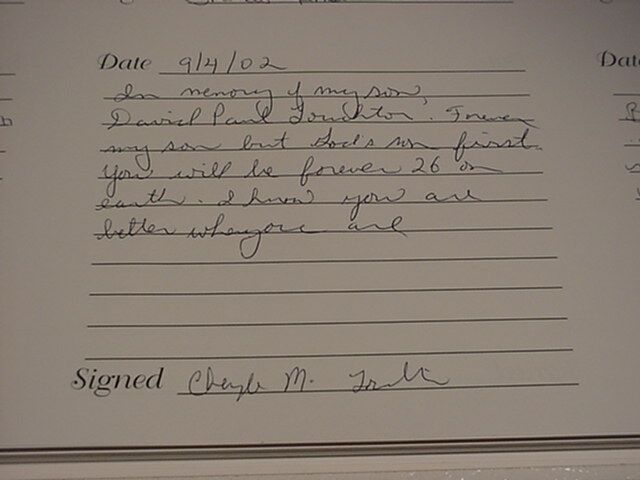 Date 9/4/02
In memory of my son,
David Paul . Forever
my son but God's son first.
You will be forever 26 on
earth. I know you are
better where you are
Signed Cheryle M.
Date